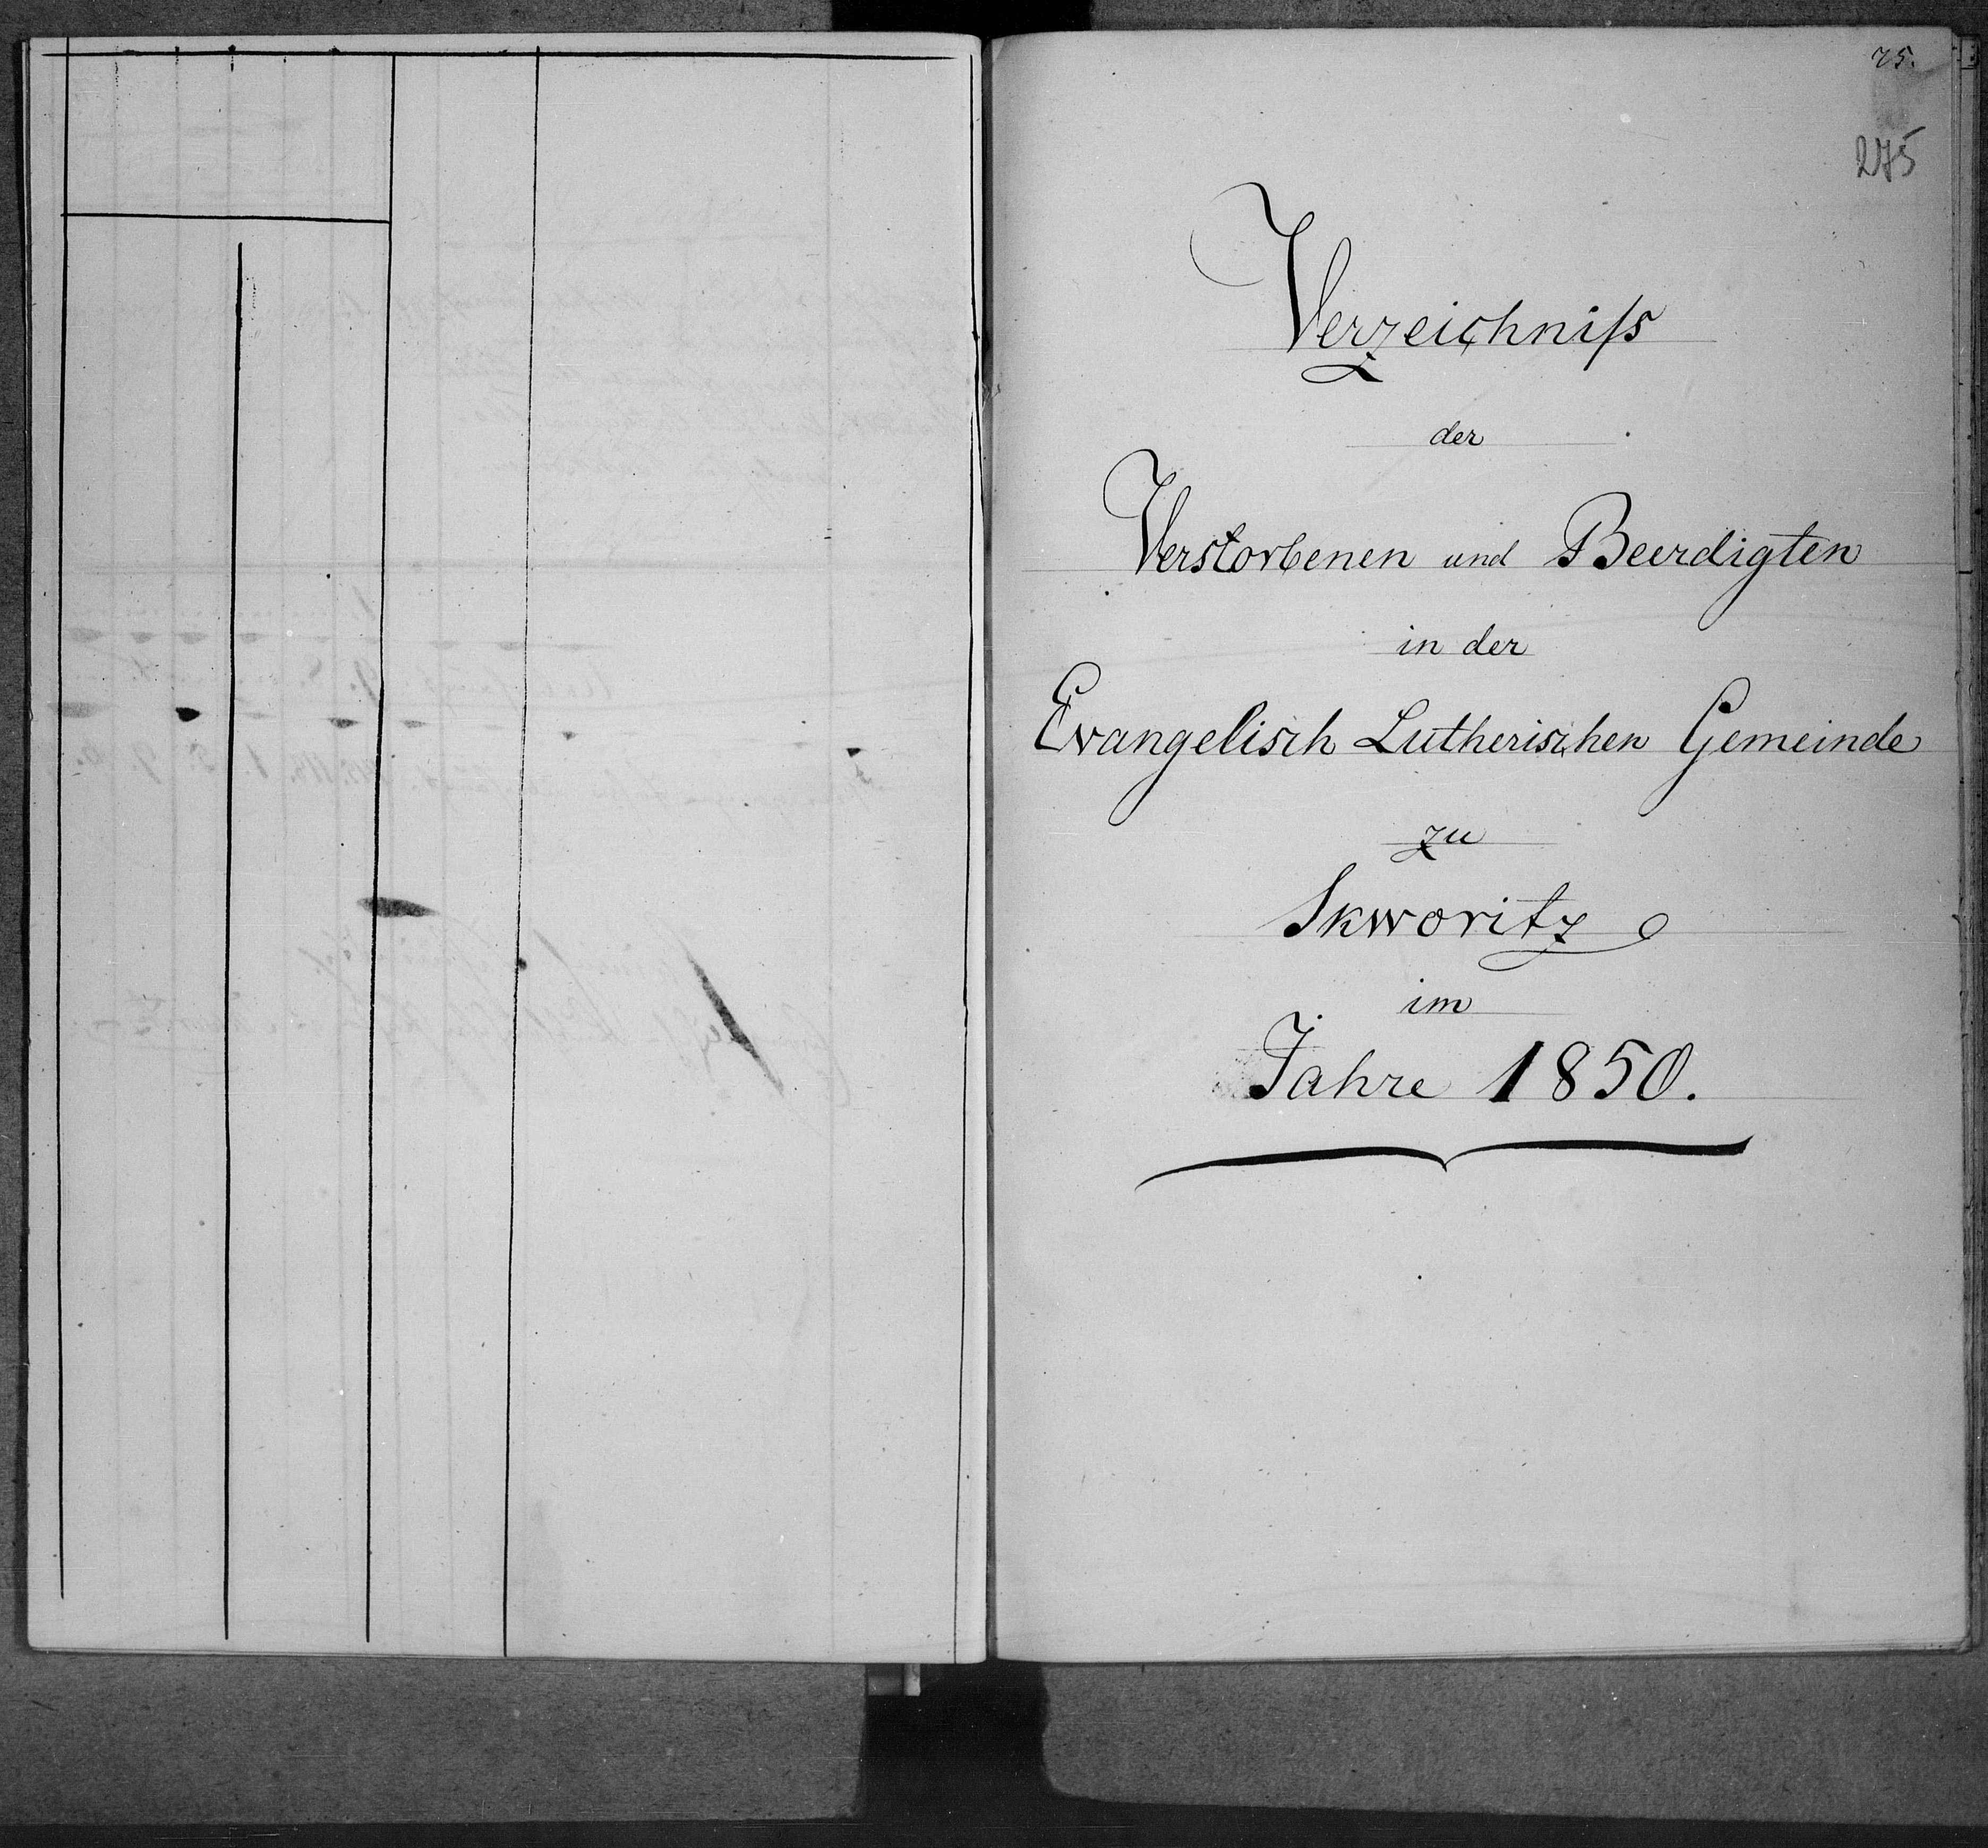 75.
275
Verzeichniſs
der
Verstorbenen und Beerdigten
in der
Evangelisch Lutherischen Gemeinde
zu
Skworitz
im
Jahre 1850.